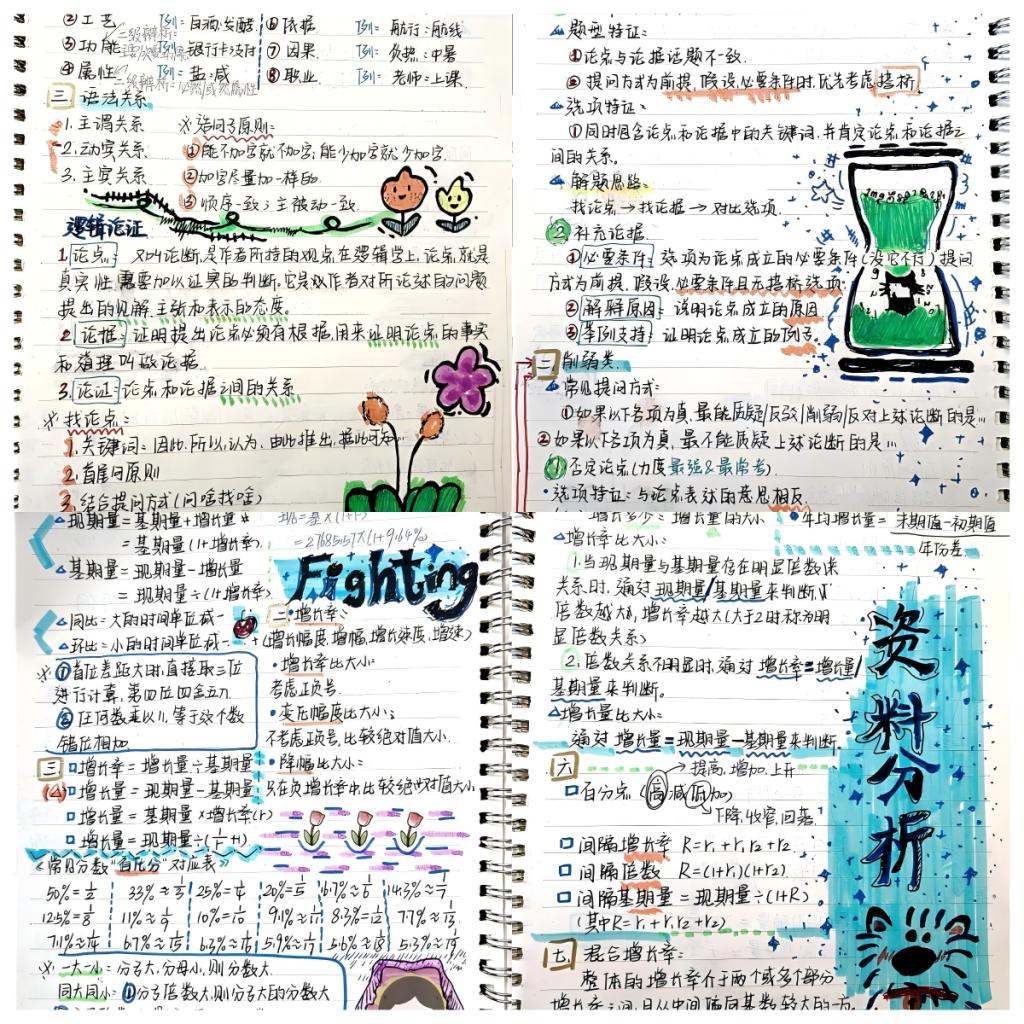 ②工艺 例：白酒：发酵
③功能 例：银行卡：支付
④属性 例：盐：咸
二级辨析：必然/或然属性
⑥依据 例：航行：航线
⑦因果 例：炎热：中暑
⑧职业 例：老师：上课
三 语法关系
1.主谓关系
2.动宾关系
3.主宾关系
※造句子原则：
①能不加字就不加字；能少加字就少加字.
②加字尽量加一样的.
③顺序一致；主被动一致.
逻辑论证
1.论点：又叫论断,是作者所持的观点在逻辑学上,论点就是
真实性需要加以证实的判断。它是以作者对所论述的问题
提出的见解、主张和表示的态度。
2.论据：证明提出论点必须有根据,用来证明论点的事实
和道理叫做论据.
3.论证：论点和论据之间的关系
※找论点：
1.关键词：因此、所以、认为、由此推出、据此可知
2.首尾句原则
3.结合提问方式(问啥找啥)
题型特征：
①论点与论据话题不一致.
②提问方式为前提,假设,必要条件时,优先考虑搭桥
选项特征：
①同时包含论点和论据中的关键词,并肯定论点和论据之
间的关系。
解题思路：
找论点→找论据→对比选项.
②补充论据：
①必要条件：选项为论点成立的必要条件(没它不行)提问
方式为前提,假设,必要条件且无搭桥选项
②解释原因：说明论点成立的原因
③举例支持：证明论点成立的例子
二 削弱类.
常见提问方式：
①如果以下各项为真,最能质疑/反驳/削弱/反对上述论断的是…
②如果以下各项为真,最不能质疑上述论断的是…
①否定论点(力度最强&最常考)
·选项特征：与论点表述的意思相反.
现期量=基期量+增长量
=基期量(1+增长率)
基期量=现期量-增长量
=现期量÷(1+增长率)
同比=大的时间单位减一
环比=小的时间单位减一
※①首位差距大时,直接取三位
进行计算,第四位四舍五入.
②任何数乘以1.1等于这个数
错位相加
三 增长率=增长量÷基期量
(A)增长量=现期量-基期量
增长量=基期量×增长率(r)
增长量=现期量÷(1/r+1)
Fighting
二·增长率：
(增长幅度、增幅、增长速度、增速)
·增长率比大小：
考虑正负号.
·变化幅度比大小：
不考虑正负号,比较绝对值大小.
·降幅比大小：
只在负增长率中比较绝对值大小
《常见分数"百化分"对应表》
50%=1/2 33%≈1/3 25%=1/4 20%=1/5 16.7%≈1/6 14.3%≈1/7
12.5%=1/8 11%≈1/9 10%=1/10 9.1%≈1/11 8.3%≈1/12 7.7%≈1/13
7.1%≈1/14 6.7%≈1/15 6.3%≈1/16 5.9%≈1/17 5.6%≈1/18 5.3%≈1/19
※一大一小：分子大,分母小,则分数大.
同大同小：①分子倍数大,则分子大的分数大
年均增长量=末期值-初期值
年份差
增长率比大小：
1.当现期量与基期量存在明显倍数关
系时,通过现期量/基期量来判断,
倍数越大,增长率越大(大于2时称为明
显倍数关系)
2.倍数关系不明显时,通过增长率=增长量/
基期量来判断。
增长量比大小：
通过增长量=现期量-基期量来判断.
六 →提高,增加,上升
百分点(高减低加)
下降,收窄,回落.
间隔增长率 R=r₁+r₂+r₁r₂
间隔倍数 R=(1+r₁)(1+r₂)
间隔基期量=现期量÷(1+R)
(其中R=r₁+r₂+r₁r₂)
七.混合增长率：
整体的增长率介于两个或多个部分
资料分析